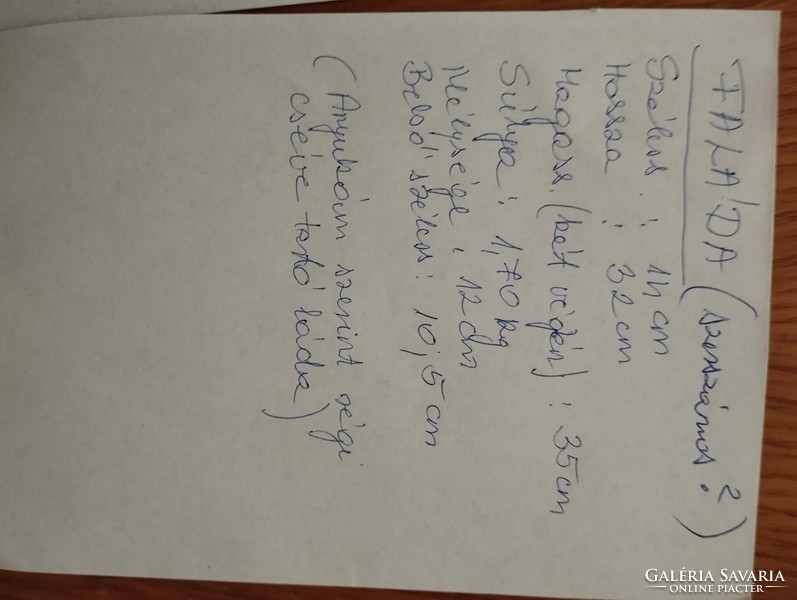 FALÁDA (szerszámos?)
Széles : 14 cm
Hossza : 32 cm
Magass. (két végén) : 35 cm
Súlya : 1,70 kg
Mélysége : 12 cm
Belső széles : 10,5 cm
(Anyukám szerint régi
cséve tartó láda)
GALÉRIA SAVARIA
ONLINE PIACTÉR